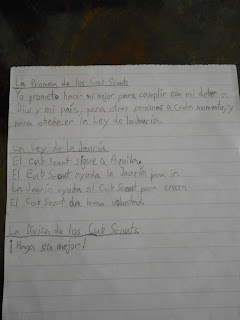 La Promesa de los Cub Scouts
Yo prometo hacer mi mejor para cumplir con mi deber a
Dios y mi país, para otras personas a cada momento, y
para obedecer la Ley de la Jauría.
La Ley de la Jauría
El Cub Scout sigue a Aquila,
El Cub Scout ayuda la Jauría para ir.
La Jauría ayuda al Cub Scout para crecer.
El Cub Scout da buena voluntad.
La Divisa de los Cub Scouts
¡Haga su mejor!